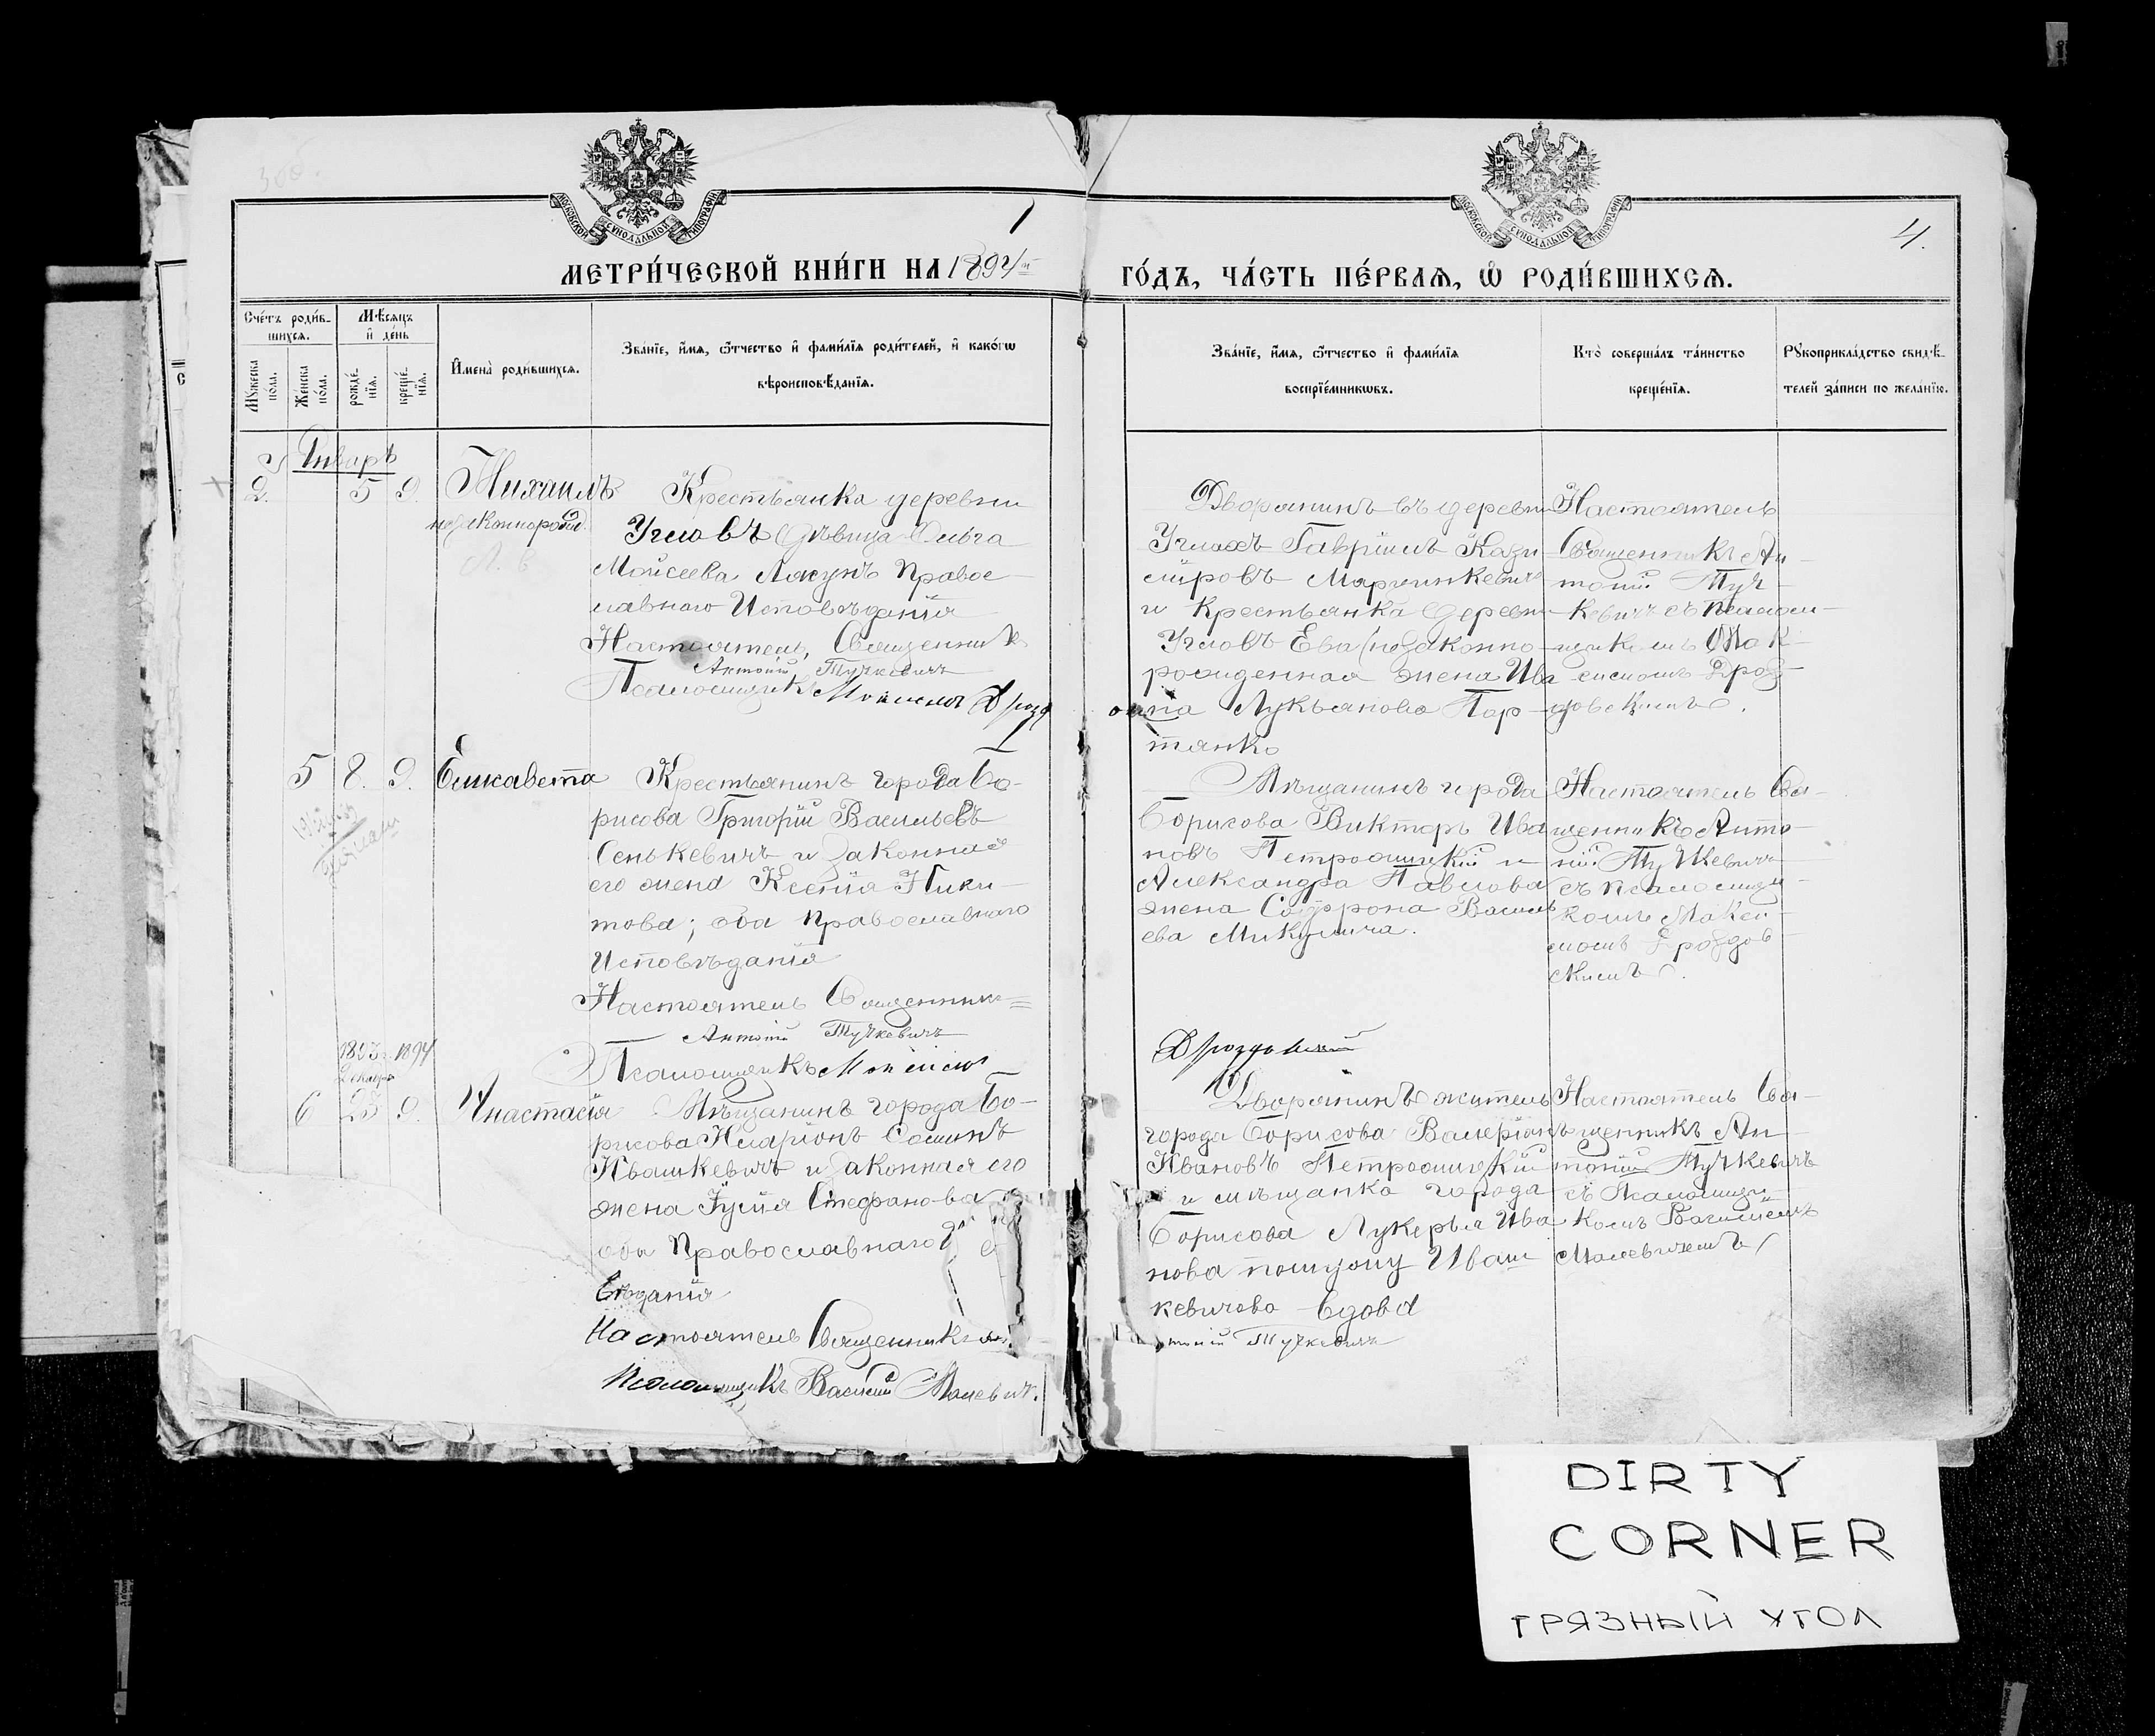 МОСКОВСКОЙ СУНОДАЛЬНОЙ ТИПОГРАФІИ
МОСКОВСКОЙ СУНОДАЛЬНОЙ ТИПОГРАФІИ
1
4.
МЕТРИ́ЧЕСКОЙ КНИ́ГИ НА 1894 й
ГО́ДЪ, ЧА́СТЬ ПЕ́РВАѦ, Ѡ҆ РОДИ́ВШИХСѦ.
Сче́тъ роди́в-
шихсѧ.
Мꙋжеска по́ла.
Же́нска по́ла.
Мѣ́сѧцъ и҆ де́нь
рожде́-
нїѧ.
креще́-
нїѧ.
И҆мена̀ роди́вшихсѧ.
Зва́нїе, и҆́мѧ, ѻ҆́тчество и҆ фами́лїѧ роди́телей, и҆ како́гѡ
вѣроисповѣ́данїѧ.
Зва́нїе, и҆́мѧ, ѻ҆́тчество и҆ фами́лїѧ
воспрїе́мникѡвъ.
Кто̀ соверша́лъ та́инство
креще́нїѧ.
Рꙋкоприкла́дство свидѣ́-
телей за́писи по жела́нїю.
Январь
2. 5 9. Михаилъ
незаконнорожд.
Крестьянка деревни
Угловъ девица Ольга
Моисеева Лякунъ Право-
славного Исповѣданія
Настоятель, Священникъ
Антоній Тучкевичъ
Псаломщикъ Моисей Дрозд
Дворянинъ въ деревни
Углахъ Гавріилъ Кази-
міровъ Марцинкевичъ
и Крестьянка деревни
Угловъ Ева (незаконно-
рожденная жена Ива
она Лукьянова Пор-
тянко
Настоятель
Священникъ Ан-
тоній Туч-
кевичъ съ Псалом-
щикомъ Мои-
сеемъ Дроз-
довскимъ.
5 8. 9. Елисавета
Крестьянинъ города Бо-
рисова Григорій Васильевъ
Сенькевичъ и законная
его жена Ксенія Ники-
това; оба Православнаго
Исповѣданія
Настоятель Священникъ
Антоній Тучкевичъ
Псаломщикъ Моисей
Мѣщанинъ города
Борисова Викторъ Ива
новъ Петрашкевій и
Александра Павлова
жена Софрона Василь
ева Микулича.
Настоятель Свя-
щенникъ Анто-
ній Тучкевичъ
съ Псаломщи-
комъ Моисе-
емъ Дроздов-
скимъ.
Дроздовскій
1893 г. 1894
Декабря
6 25 9. Анастасія
Мѣщанинъ города Бо-
рисова Иларіонъ Соминъ
Ивашкевичъ и законная его
жена Стефанова
оба Православнаго
вѣданія
Настоятель Священникъ Ан
Псаломщикъ Василій Малевич.
Дворянинъ житель
города Борисова Валеріанъ
Ивановъ
и мѣщанка города
Борисова Лукерья Ива
нова Иваш
кевичова вдова
тоній Тучкевичъ
Настоятель Свя-
щенникъ Ан-
тоній Тучкевичъ
съ Псаломщи-
комъ Василіемъ
Малевичемъ
DIRTY
CORNER
ГРЯЗНЫЙ УГОЛ